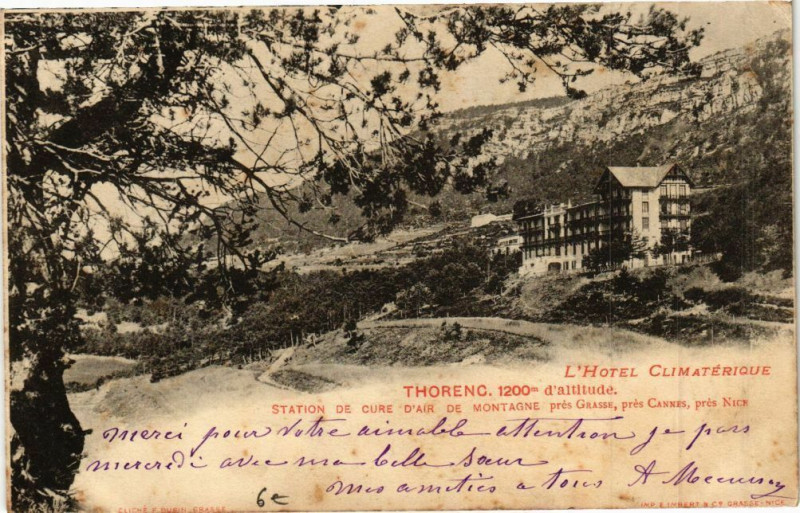 L'HOTEL CLIMATÉRIQUE
THORENC. 1200m d'altitude.
STATION DE CURE D'AIR DE MONTAGNE prés GRASSE, près CANNES, près NICE
merci pour votre aimable attention je pars
mercredi avec ma belle sœur
mes amitiés a tous A
6e
CLICHÉ F. BUSIN, GRASSE
IMP. E. IMBERT & Cie GRASSE-NICE